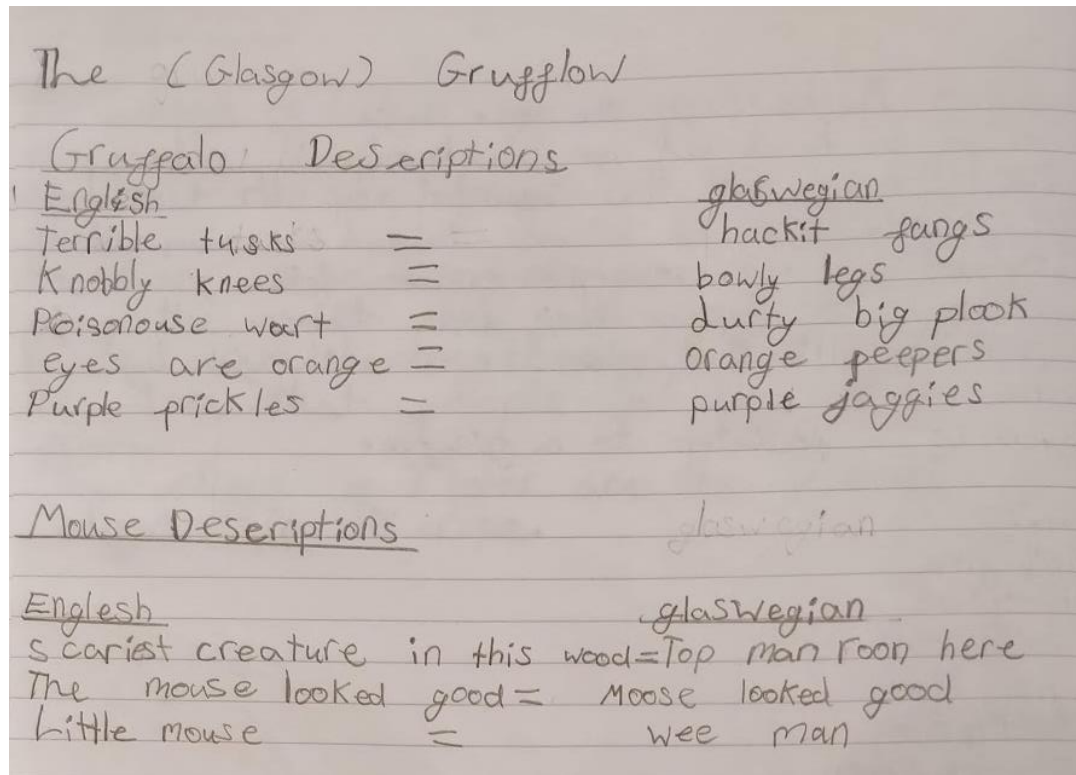 The (Glasgow) Grufflow
Gruffalo Descriptions
English glaswegian
Terrible tusks = hackit fangs
Knobbly knees = bowly legs
Poisonouse wart = durty big plook
eyes are orange = orange peepers
Purple prickles = purple jaggies
Mouse Descriptions glaswegian
Englesh glaswegian
scariest creature in this wood = Top man roon here
The mouse looked good = Moose looked good
Little mouse = wee man